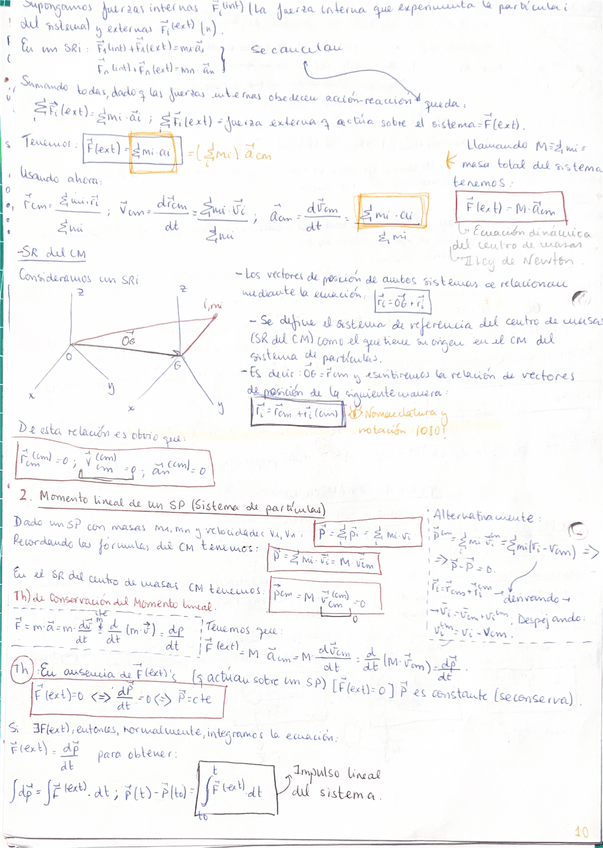 Supongamos fuerzas internas F⃗i(int) (La fuerza interna que experimenta la partícula i
del sistema) y externas F⃗i(ext) (n).
En un SRi: F⃗i(int)+F⃗i(ext)=mi·a⃗i
F⃗n(int)+F⃗n(ext)=mn·a⃗n
Se cancelan
Sumando todas, dado q las fuerzas internas obedecen acción-reacción queda:
ΣF⃗i(ext)=Σmi·a⃗i ; ΣF⃗i(ext)=fuerza externa q actúa sobre el sistema=F⃗(ext).
Tenemos: F⃗(ext)=Σmi·ai =(Σmi)a⃗cm
Llamando M=Σmi=
masa total del sistema
tenemos:
F⃗(ext)=M·a⃗cm
Ecuación dinámica
del centro de masas
II Ley de Newton.
Usando ahora:
r⃗cm=Σmi·r⃗i/Σmi ; v⃗cm=dr⃗cm/dt=Σmi·v⃗i/Σmi ; a⃗cm=dv⃗cm/dt=Σmi·ai/Σmi
-SR del CM
Consideramos un SRi
z z i,mi
O OG⃗ G
x y x y
- Los vectores de posición de ambos sistemas se relacionan
mediante la ecuación: r⃗i=OG⃗+r⃗i
- Se define el sistema de referencia del centro de masas
(SR del CM) como el que tiene su origen en el CM del
sistema de partículas.
- Es decir: OG⃗=r⃗cm y escribiremos la relación de vectores
de posición de la siguiente manera:
r⃗i=r⃗cm+r⃗i(cm)
Nomenclatura y
notación
De esta relación es obvio que:
r⃗cm(cm)=0 ; v⃗cm(cm)=0 ; a⃗m(cm)=0
2. Momento lineal de un SP (Sistema de partículas)
Dado un SP con masas mi,mn y velocidades vi,vn: P⃗=Σp⃗i=Σmi·vi
Recordando las fórmulas del CM tenemos: P⃗=Σmi·vi=M·v⃗cm
En el SR del centro de masas CM tenemos: p⃗cm=M·v⃗cm(cm)=0
0
Alternativamente:
p⃗cm=Σmi v⃗i cm=Σmi(vi-vcm) =>
=> p⃗-p⃗=0.
r⃗i=r⃗cm+r⃗i cm → derivando →
→ v⃗i=v⃗cm+vi cm. Despejando:
v⃗i cm=v⃗i-v⃗cm.
Th) de Conservación del Momento Lineal.
F⃗=m·a⃗=m·dv⃗/dt = d/dt(m·v⃗)=dp/dt
cte
Tenemos que:
F⃗(ext)=M·a⃗cm=M·dv⃗cm/dt=d/dt(M·v⃗cm)=dp⃗/dt.
Th. En ausencia de F⃗(ext)'s (q actúan sobre un SP) [F⃗(ext)=0] P⃗ es constante (se conserva).
F⃗(ext)=0 <=> dP⃗/dt=0 <=> P⃗=cte
Si ∃F(ext), entonces, normalmente, integramos la ecuación:
F⃗(ext)=dp⃗/dt para obtener:
∫dp⃗=∫F⃗(ext)·dt ; p⃗(t)-P⃗(to)=∫to t F⃗(ext)·dt
Impulso lineal
del sistema.
10